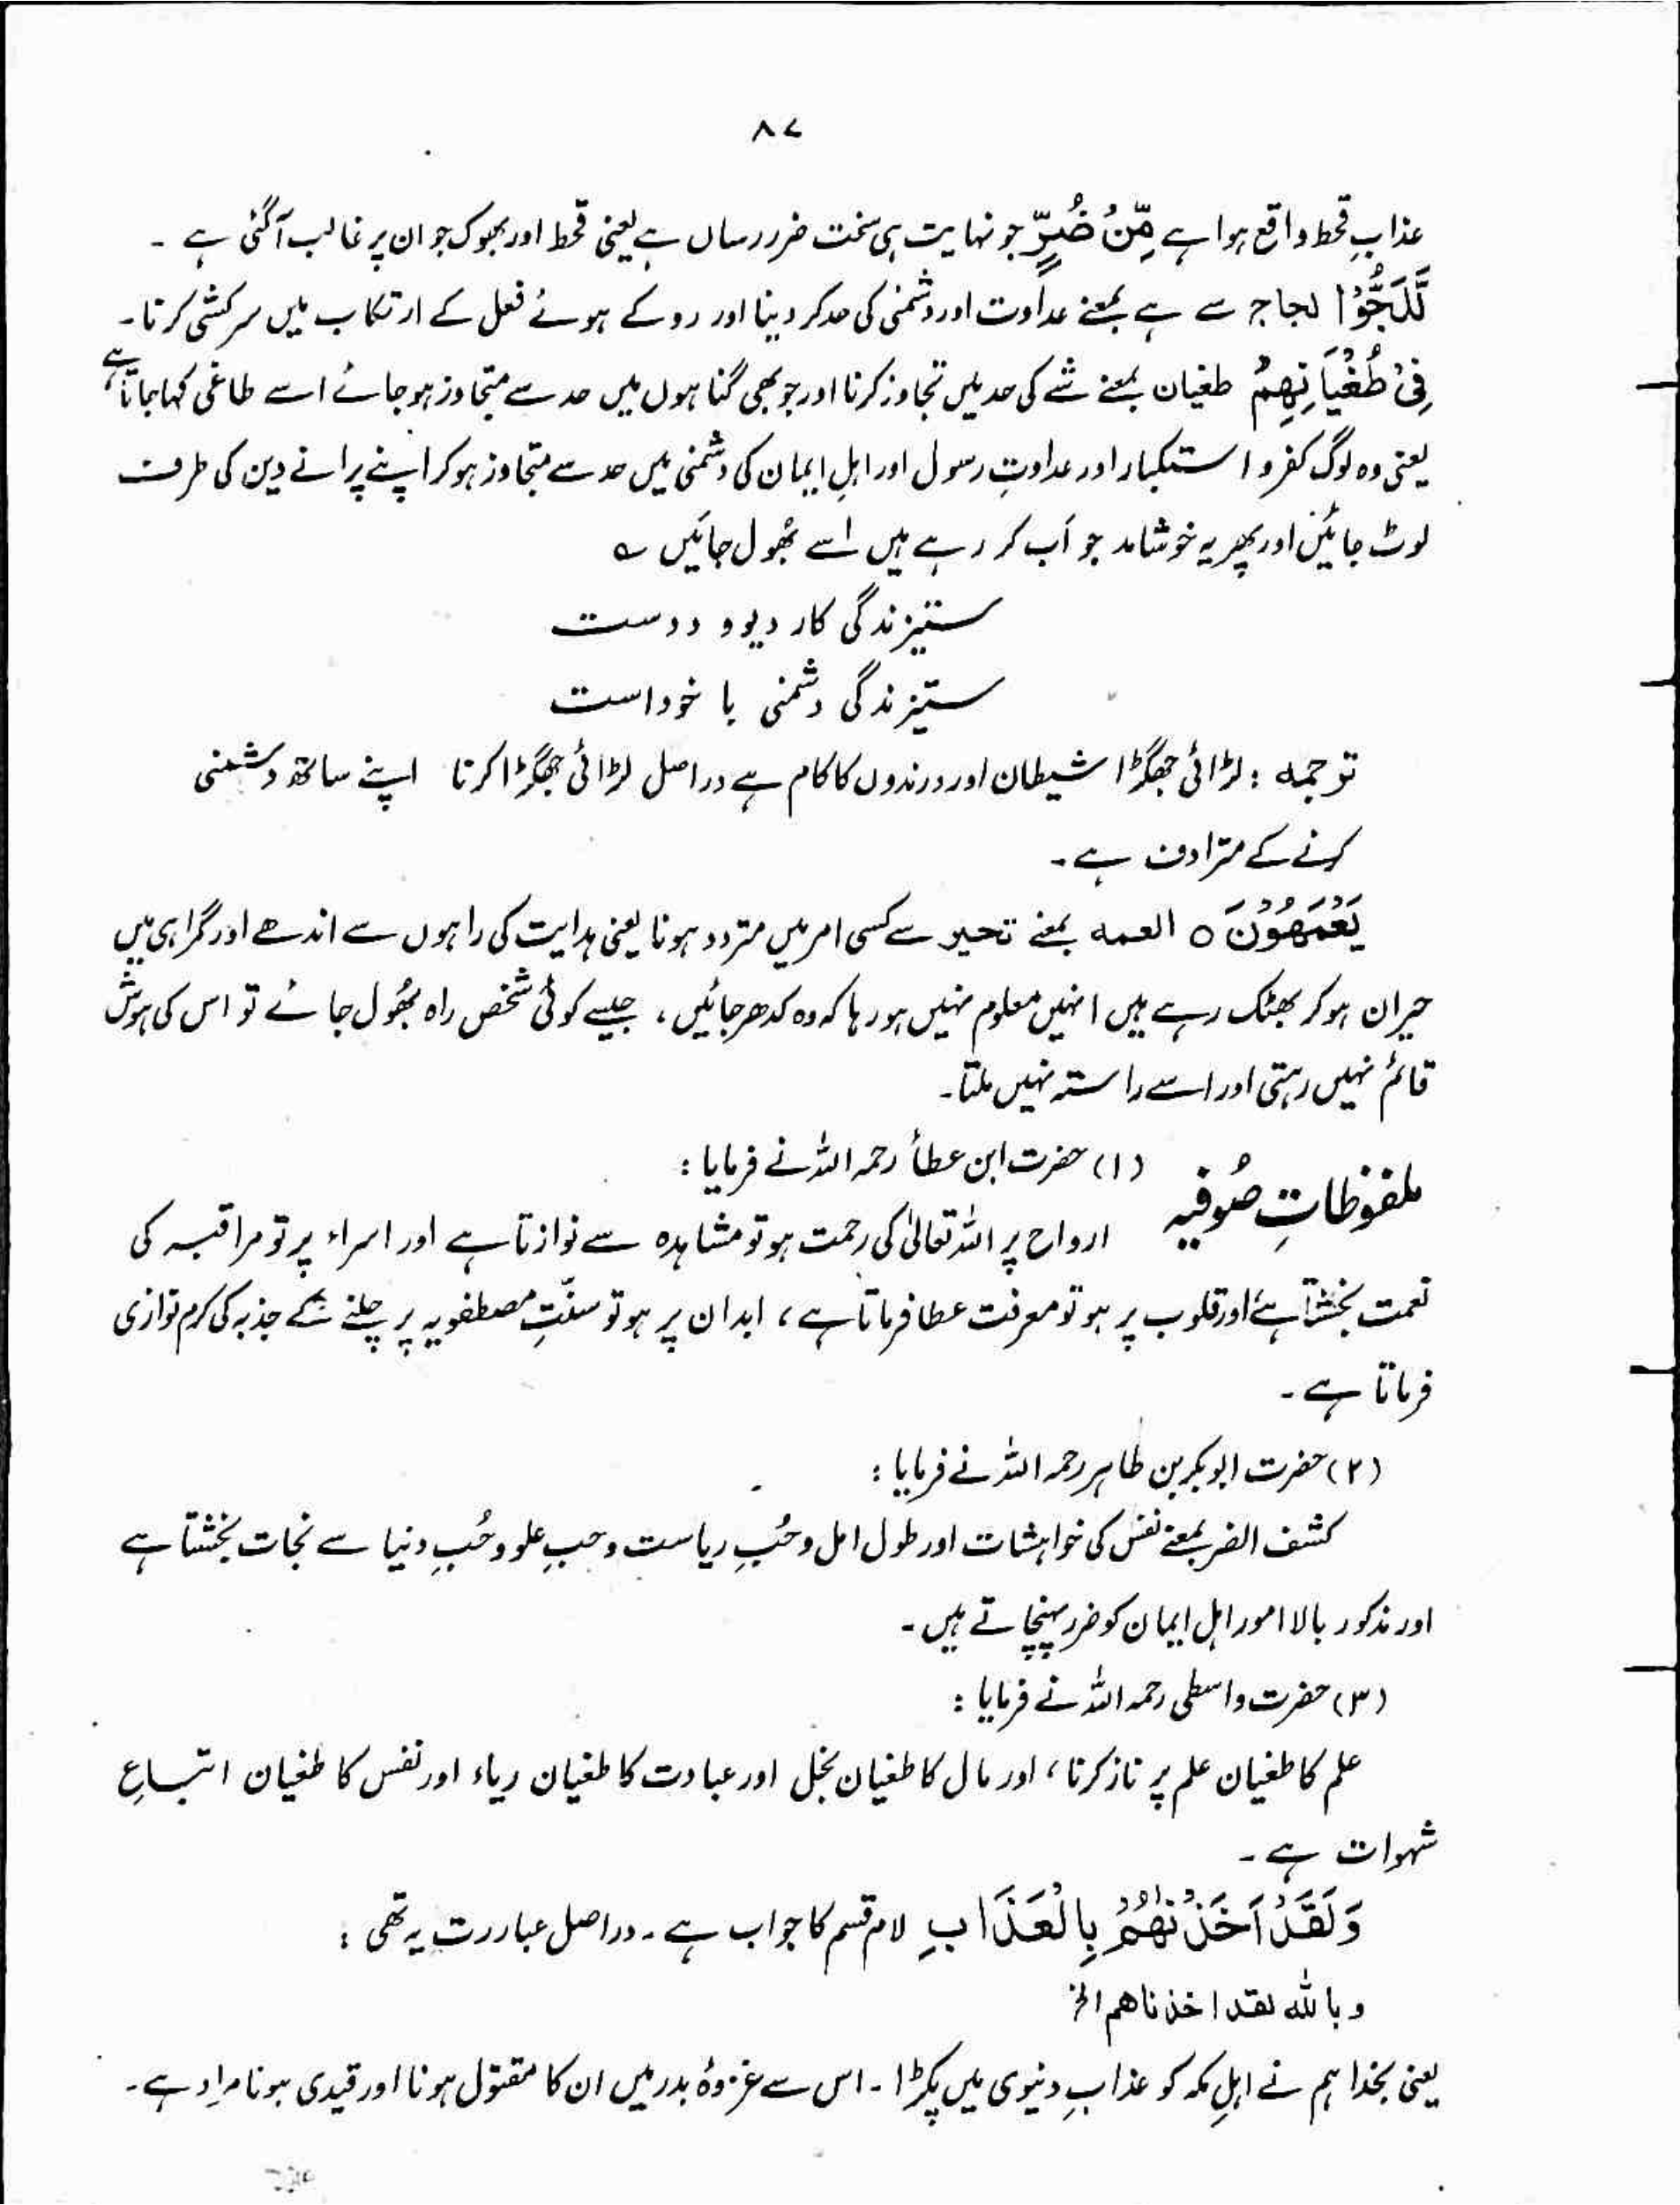 ۸۷
عذابِ قحط واقع ہوا ہے مِّنْ ضُرٍّ جو نہایت ہی سخت ضرر رساں ہے یعنی قحط اور بھوک جو ان پر غالب آگئی ہے ۔
لَّلَجُّوْا لجاج سے ہے بمعنے عداوت اور دشمنی کی حد کر دینا اور روکے ہوئے فعل کے ارتکاب میں سرکشی کرنا۔
فِیْ طُغْیَانِهِمْ طغیان بمعنے شے کی حد میں تجاوز کرنا اور جو بھی گناہوں میں حد سے متجاوز ہو جائے اسے طاغی کہا جاتا ہے،
یعنی وہ لوگ کفر و استکبار اور عداوتِ رسول اور اہلِ ایمان کی دشمنی میں حد سے متجاوز ہو کر اپنے پرانے دین کی طرف
لوٹ جائیں اور پھر یہ خوشامد جو اَب کر رہے ہیں اُسے بھُول جائیں ؎
ستیزندگی کار دیو و ددست
ستیزندگی دشمنی با خود است
توجمه : لڑائی جھگڑا شیطان اور درندوں کا کام ہے در اصل لڑائی جھگڑا کرنا اپنے ساتھ دشمنی
کرنے کے مترادف ہے۔
یَعْمَهُوْنَ ○ العمه بمعنے تحیر سے کسی امر میں متردد ہونا یعنی ہدایت کی راہوں سے اندھے اور گمراہی میں
حیران ہو کر بھٹک رہے ہیں انہیں معلوم نہیں ہو رہا کہ وہ کدھر جائیں ، جیسے کوئی شخص راہ بھُول جائے تو اس کی ہوش
قائم نہیں رہتی اور اسے راستہ نہیں ملتا۔
ملفوظاتِ صُوفیہ (۱) حضرت ابن عطأ رحمہ اللہ نے فرمایا :
ارواح پر اللہ تعالٰی کی رحمت ہو تو مشاہدہ سے نوازتا ہے اور اسراء پر تو مراقبہ کی
نعمت بخشتا ہے اور قلوب پر ہو تو معرفت عطا فرماتا ہے ، ابدان پر ہو تو سنّتِ مصطفویہ پر چلنے کے جذبہ کی کرم نوازی
فرماتا ہے ۔
(۲) حضرت ابوبکر بن طاہر رحمہ اللہ نے فرمایا :
کشف الضر بمعنے نفس کی خواہشات اور طول امل و حُبِ ریاست و حبِ علو و حُبِ دنیا سے نجات بخشتا ہے
اور مذکور بالا امور اہل ایمان کو ضرر پہنچاتے ہیں ۔
(۳) حضرت واسطی رحمہ اللہ نے فرمایا :
علم کا طغیان علم پر ناز کرنا ، اور مال کا طغیان بخل اور عبادت کا طغیان ریاء اور نفس کا طغیان اتباعِ
شہوات ہے ۔
وَلَقَدْ اَخَذْنٰهُمْ بِالْعَذَابِ لام قسم کا جواب ہے ۔ دراصل عبارت یہ تھی :
و بالله لقد اخذناهم الخ
یعنی بخدا ہم نے اہلِ مکہ کو عذابِ دنیوی میں پکڑا ۔ اس سے غزوۂ بدر میں ان کا مقتول ہونا اور قیدی ہونا مراد ہے ۔